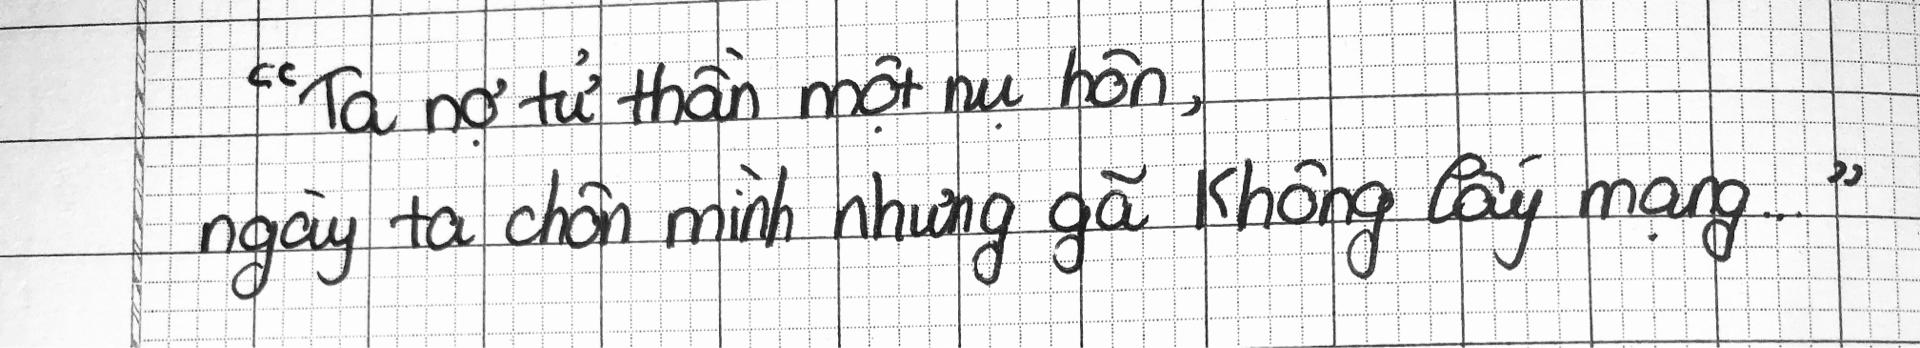 “Ta nợ tử thần một nụ hôn,
ngày ta chôn mình nhưng gã không lấy mạng...”